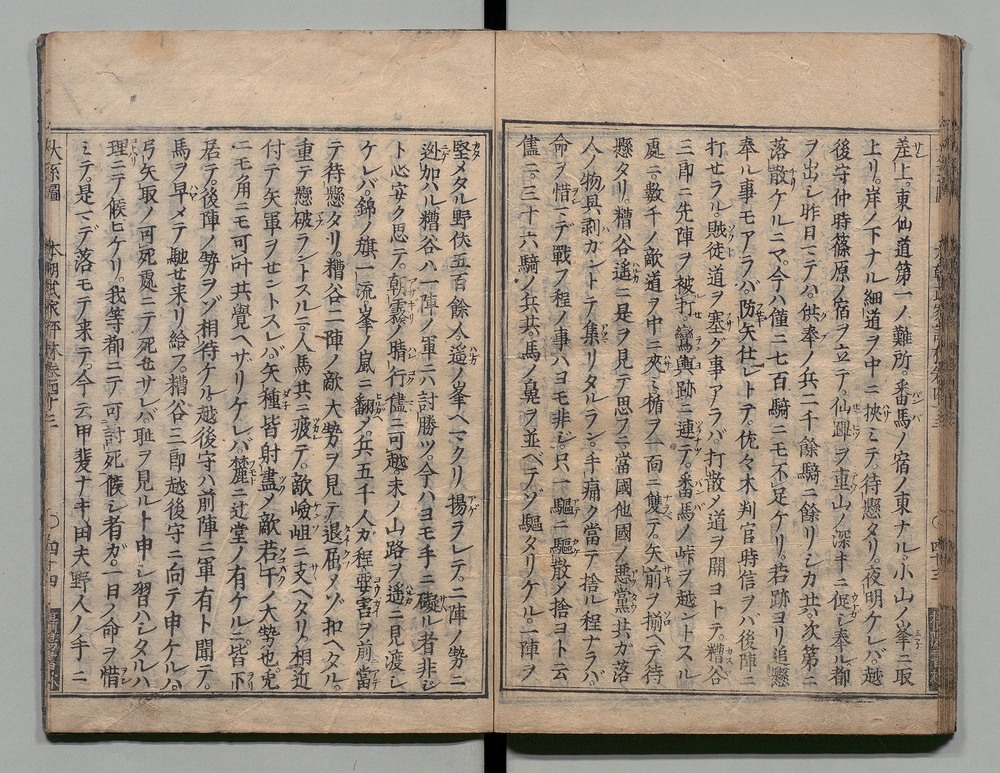 差上東仙道第一ノ難所。番馬ノ宿ノ東ナル。小山ノ峯ニ取
上リ。岸ノ下ナル細道ヲ中ニ挾ミテ。待懸タリ。夜明ケレバ。越
後守仲時篠原ノ宿ヲ立テ。仙蹕ヲ重山ノ深キニ促シ奉ル都
ヲ出シ昨日マデハ。供奉ノ兵二千餘騎ニ餘リシカ共。次第ニ
落散ケルニマ。今ハ僅ニ七百騎ニモ不足ケリ。若跡ヨリ追懸
奉ル事モアラバ。防矢仕レトテ。佐々木判官時信ヲバ後陣ニ
打セラル。賊徒道ヲ塞グ事アラバ。打散メ道ヲ開ヨトテ。糟谷
三郎ニ先陣ヲ被打鸞輿跡ニ連テ。番馬ノ峠ヲ越ントスル
處ニ。數千ノ敵道ヲ中ニ夾ミ楯ヲ一面ニ雙テ。矢前ヲ揃ヘテ待
懸タリ。糟谷遙ニ是ヲ見テ思フニ。當國他國ノ惡黨共ガ落
人ノ物具剥ガントテ集リタルラン。手痛ク當テ捨ル程ナラバ。
命ヲ惜マデ戰フ程ノ事ハヨモ非ジ。只一驅ニ驅散メ捨ヨト云
儘ニ。三十六騎ノ兵共。馬ノ鼻ヲ並ベテゾ驅タリケル。一陣ヲ
堅メタル野伏五百餘人。遥ノ峯ヘマクリ揚ラレテ。二陣ノ勢ニ
迯加ハル糟谷ハ一陣ノ軍ニハ討勝ツ。今ハヨモ手ニ礙ル者非ジ
ト心安ク思テ。朝霧ノ晴行儘ニ可越。末ノ山路ヲ遥ニ見渡シ
ケレバ。錦ノ旗一流峯ノ嵐ニ翻メ兵五千人カ程要害ヲ前ニ當
テ待懸タリ。糟谷二陣ノ敵大勢ヲ見テ退屈メゾ扣ヘタル。
重テ懸破ラントスルニ。人馬共ニ疲テ。敵嶮岨ニ支ヘタリ。相近
付テ矢軍ヲセントスレバ。矢種皆射盡メ敵若干ノ大勢也。兎
ニモ角ニモ可叶共覺ヘザリケレバ。麓ニ辻堂ノ有ケルニ。皆下
居テ。後陣ノ勢ヲゾ相待ケル。越後守ハ前陣ニ軍有ト聞テ。
馬ヲ早メテ馳セ来リ給フ。糟谷三郎越後守ニ向テ申ケルハ。
弓矢取ノ可死處ニテ死セサレバ。耻ヲ見ルト申シ習ハシタルハ
理ニテ候ヒケリ。我等都ニテ可討死候シ者ガ。一日ノ命ヲ惜
ミテ。是マデ落モテ来テ。今云甲斐ナキ田夫野人ノ手ニ
本朝武家評林巻四十三
〇四十四
〇四十三
大系圖